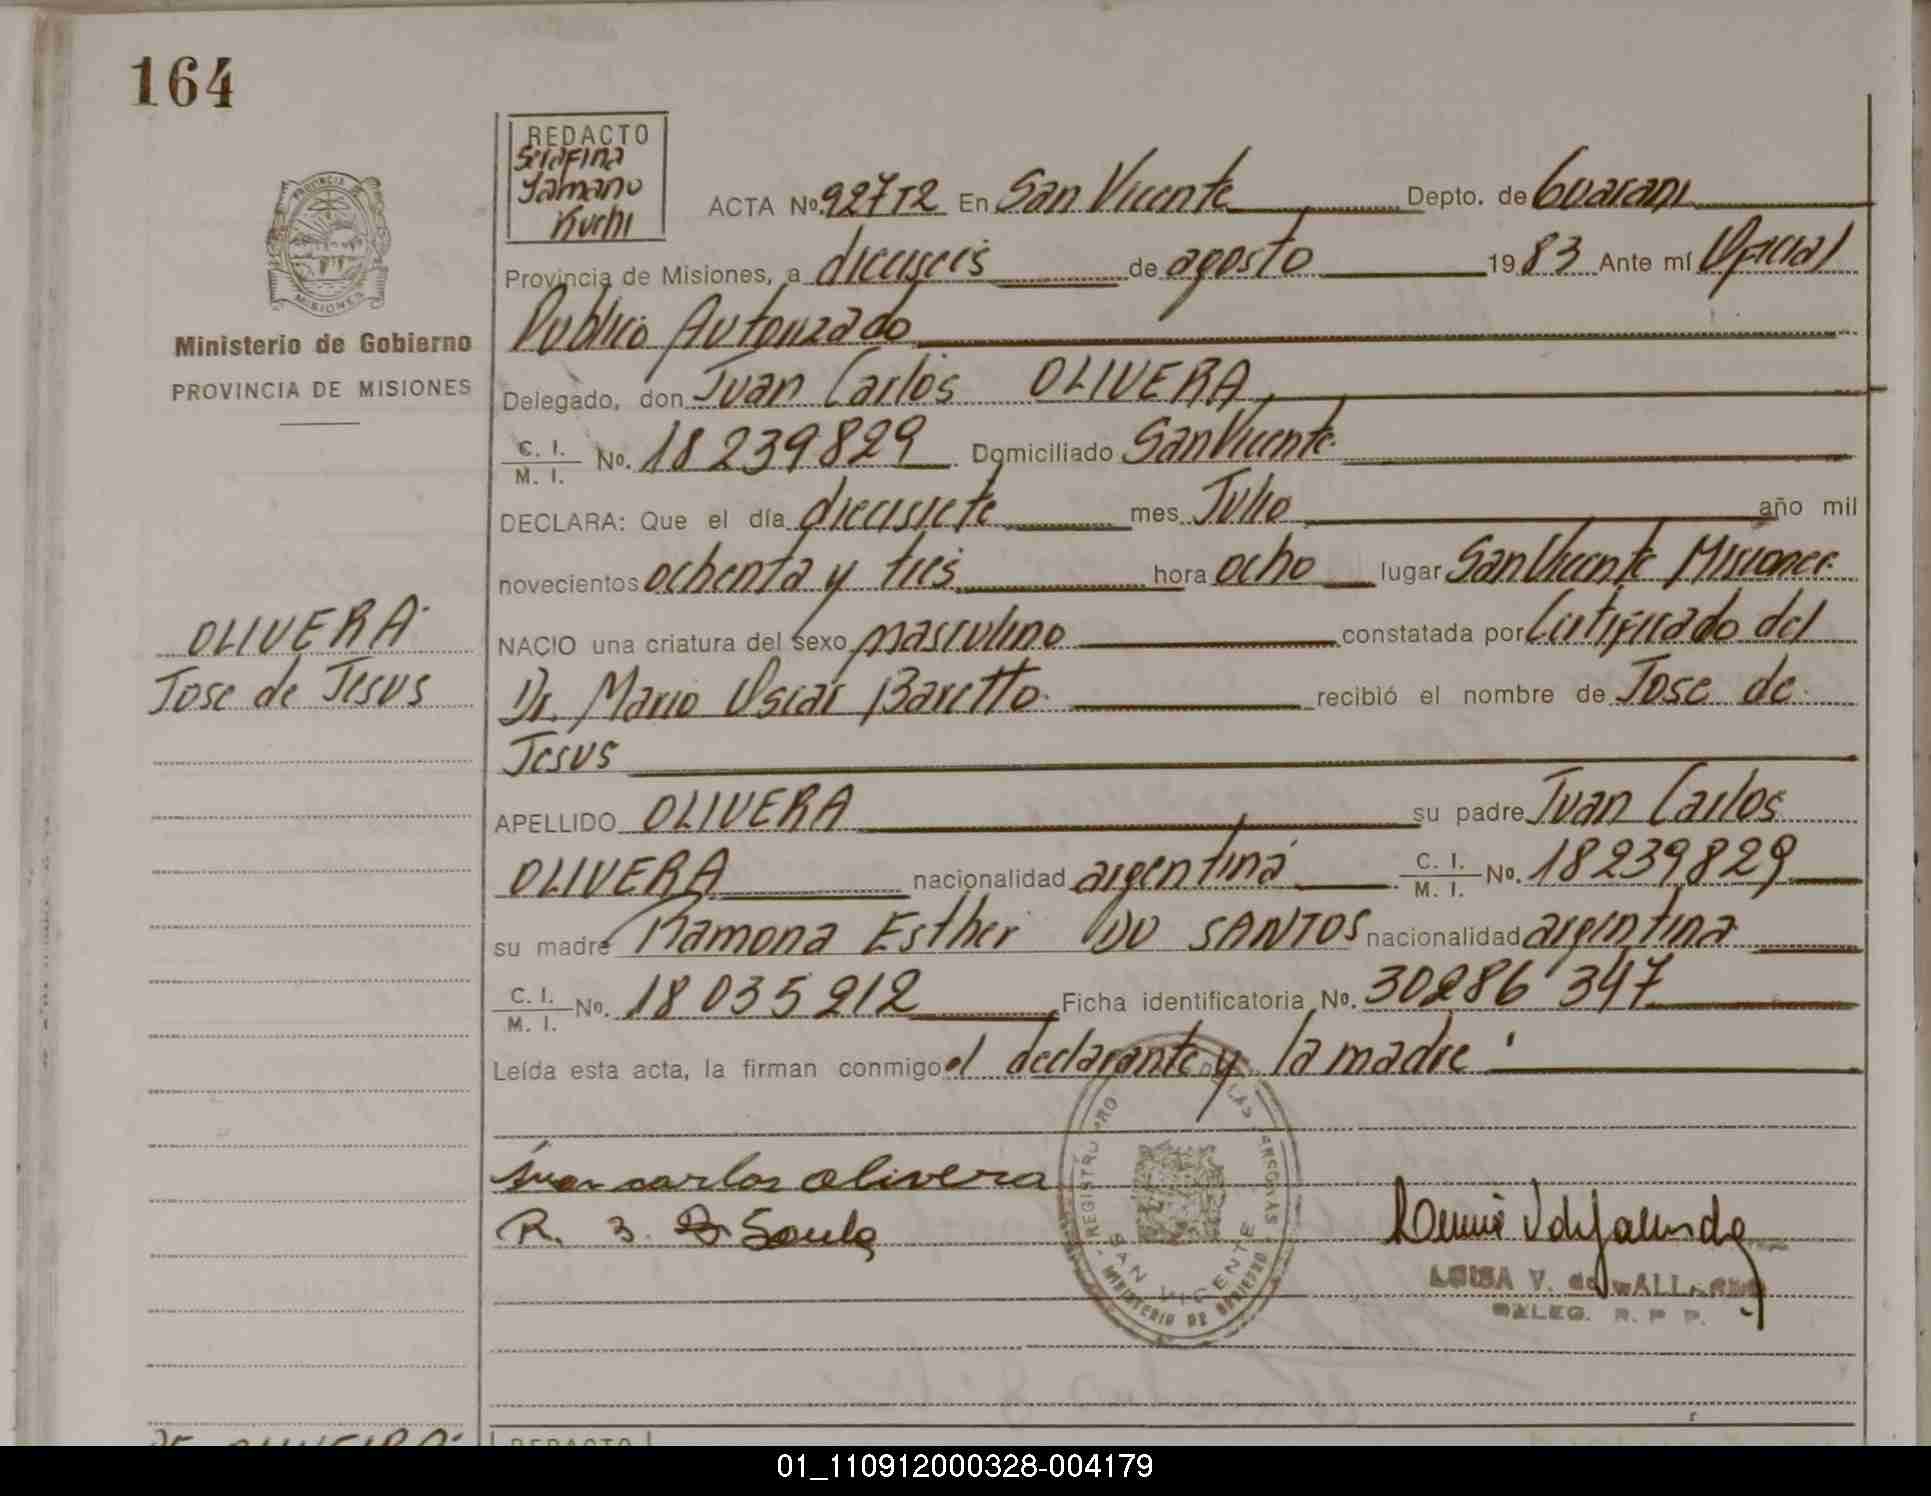 164
REDACTO
Serafina
Tamano
Kuchi
PROVINCIA DE
MISIONES
Ministerio de Gobierno
PROVINCIA DE MISIONES
OLIVERA
Jose de Jesus
ACTA Nº. 927T2 En San Vicente Depto. de Guarani
Provincia de Misiones, a dieciseis de agosto 1983 Ante mí Oficial
Publico Autorizado
Delegado, don Juan Carlos OLIVERA
C. I. / M. I. Nº. 18 239 829 Domiciliado San Vicente
DECLARA: Que el día diecisiete mes Julio año mil
novecientos ochenta y tres hora ocho lugar San Vicente Misiones
NACIO una criatura del sexo masculino constatada por Certificado del
Dr. Mario Oscar Baretto recibió el nombre de Jose de
Jesus
APELLIDO OLIVERA su padre Juan Carlos
OLIVERA nacionalidad argentina C. I. / M. I. Nº. 18239829
su madre Ramona Esther DO SANTOS nacionalidad argentina
C. I. / M. I. Nº. 18 035 212 Ficha identificatoria Nº. 30286 347
Leída esta acta, la firman conmigo el declarante y la madre
Juan carlos olivera
SAN VICENTE
MINISTERIO DE GOBIERNO
LUISA V. de
DELEG. R. P. P.
REDACTO
01_110912000328-004179